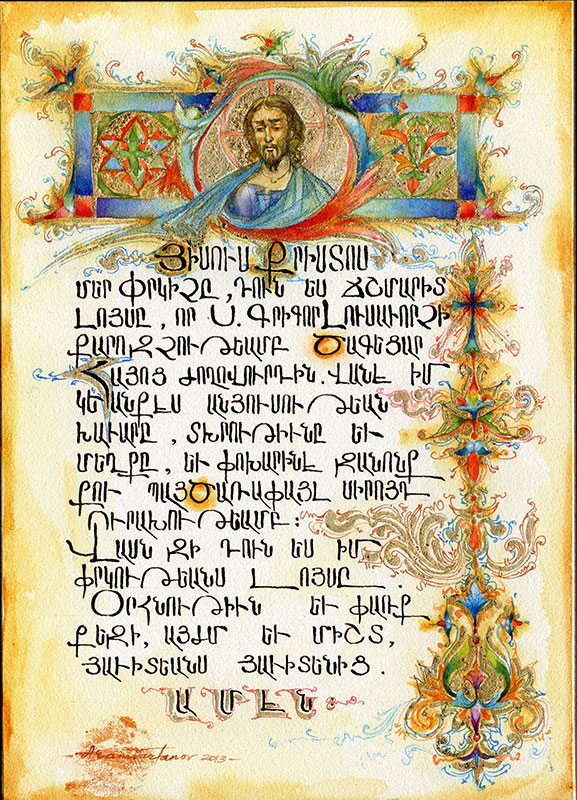 ՅԻՍՈՒՍ ՔՐԻՍՏՈՍ
ՄԵՐ ՓՐԿԻՉԸ, ԴՈՒՆ ԵՍ ՃՇՄԱՐԻՏ
ԼՈՅՍԸ, ՈՐ Ս. ԳՐԻԳՈՐ ԼՈՒՍԱՒՈՐՉԻ
ՔԱՐՈԶՉՈՒԹԵԱՄԲ ԾԱԳԵՑԱՐ
ՀԱՅՈՑ ԺՈՂՈՎՈՒՐԴԻՆ. ՎԱՆԷ ԻՄ
ԿԵԱՆՔԷՍ ԱՆՅՈՒՍՈՒԹԵԱՆ
ԽԱՒԱՐԸ, ՏԽՐՈՒԹԻՒՆԸ ԵՒ
ՄԵՂՔԸ, ԵՒ ՓՈԽԱՐԻՆԷ ԶԱՆՈՆՔ
ՔՈՒ ՊԱՅԾԱՌԱՓԱՅԼ ՍԻՐՈՅԴ
ՈՒՐԱԽՈՒԹԵԱՄԲ:
ՎԱՍՆ ԶԻ ԴՈՒՆ ԵՍ ԻՄ
ՓՐԿՈՒԹԵԱՆՍ ԼՈՅՍԸ.
ՕՐՀՆՈՒԹԻՒՆ ԵՒ ՓԱՌՔ
ՔԵԶԻ, ԱՅԺՄ ԵՒ ՄԻՇՏ,
ՅԱՒԻՏԵԱՆՍ ՅԱՒԻՏԵՆԻՑ.
ԱՄԷՆ:
2013-